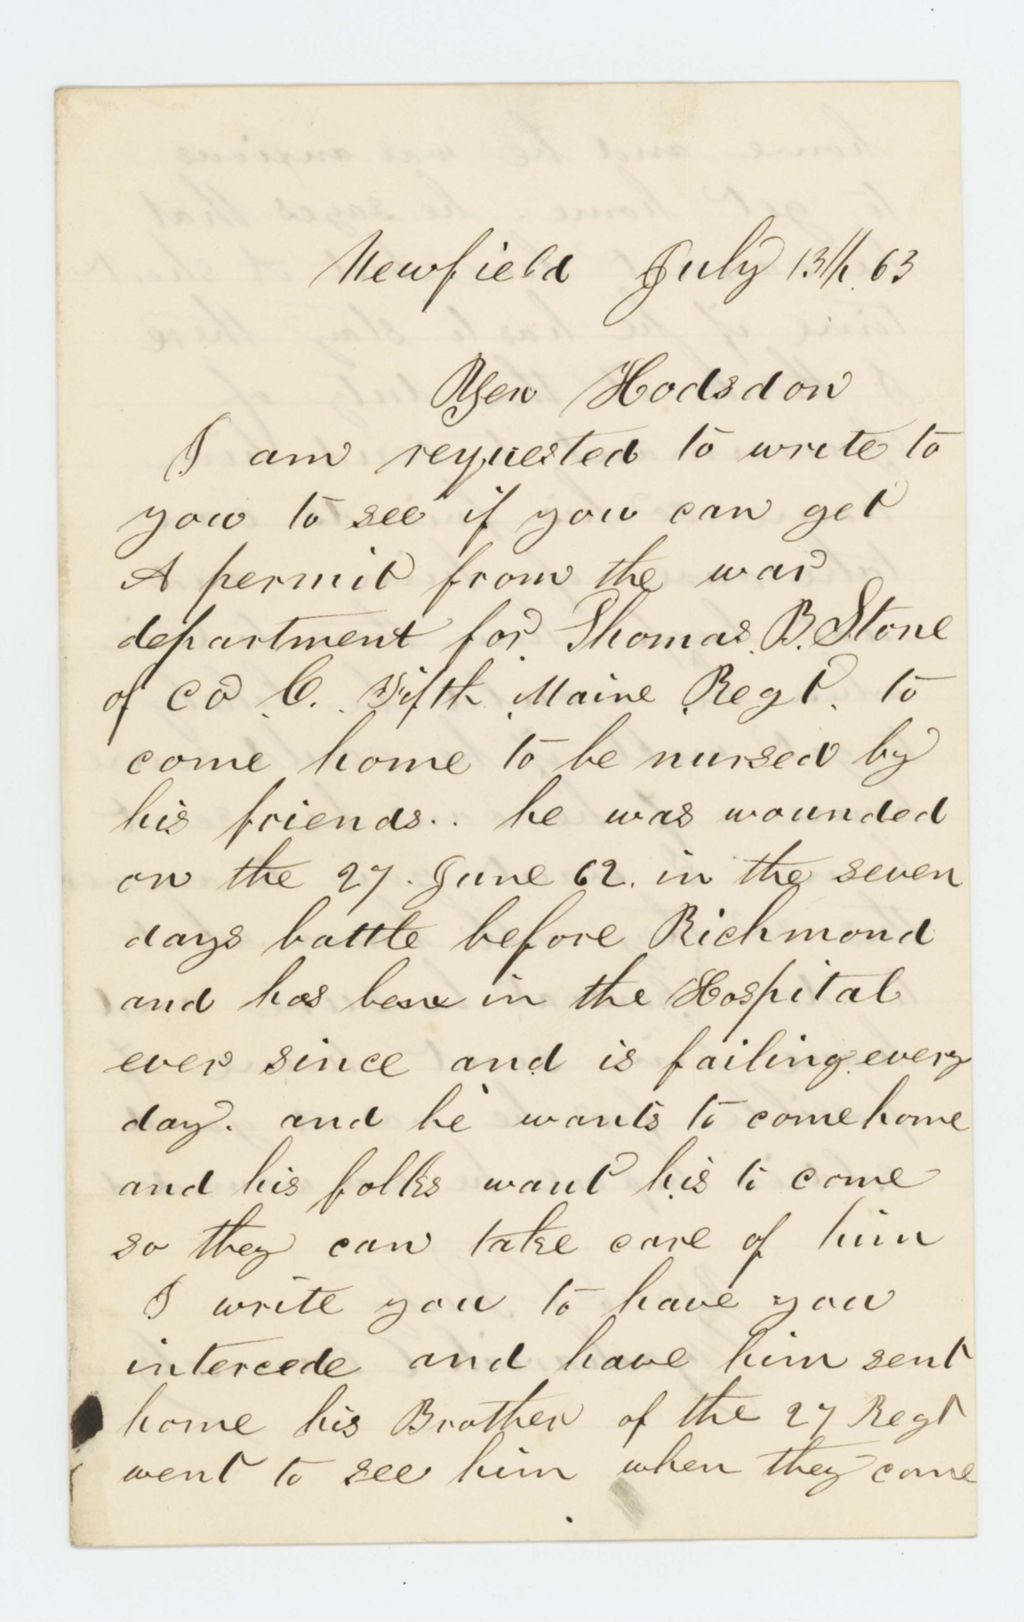 Newfield July 13th, 63
Gen Hodsdon
I am requested to write to
you to see if you can get
A permit from the war
department for Thomas B. Stone
of Co C. Fifth Maine Regt. to
come home to be nursed by
his friends.. he was wounded
on the 27. June 62. in the seven
days battle before Richmond
and has bene in the Hospital
ever since and is failing every
day. and he wants to come home
and his folks want his to come
so they can take care of him
I write you to have you
intercede and have him sent
home his Brother of the 27 Regt
went to see him when they come